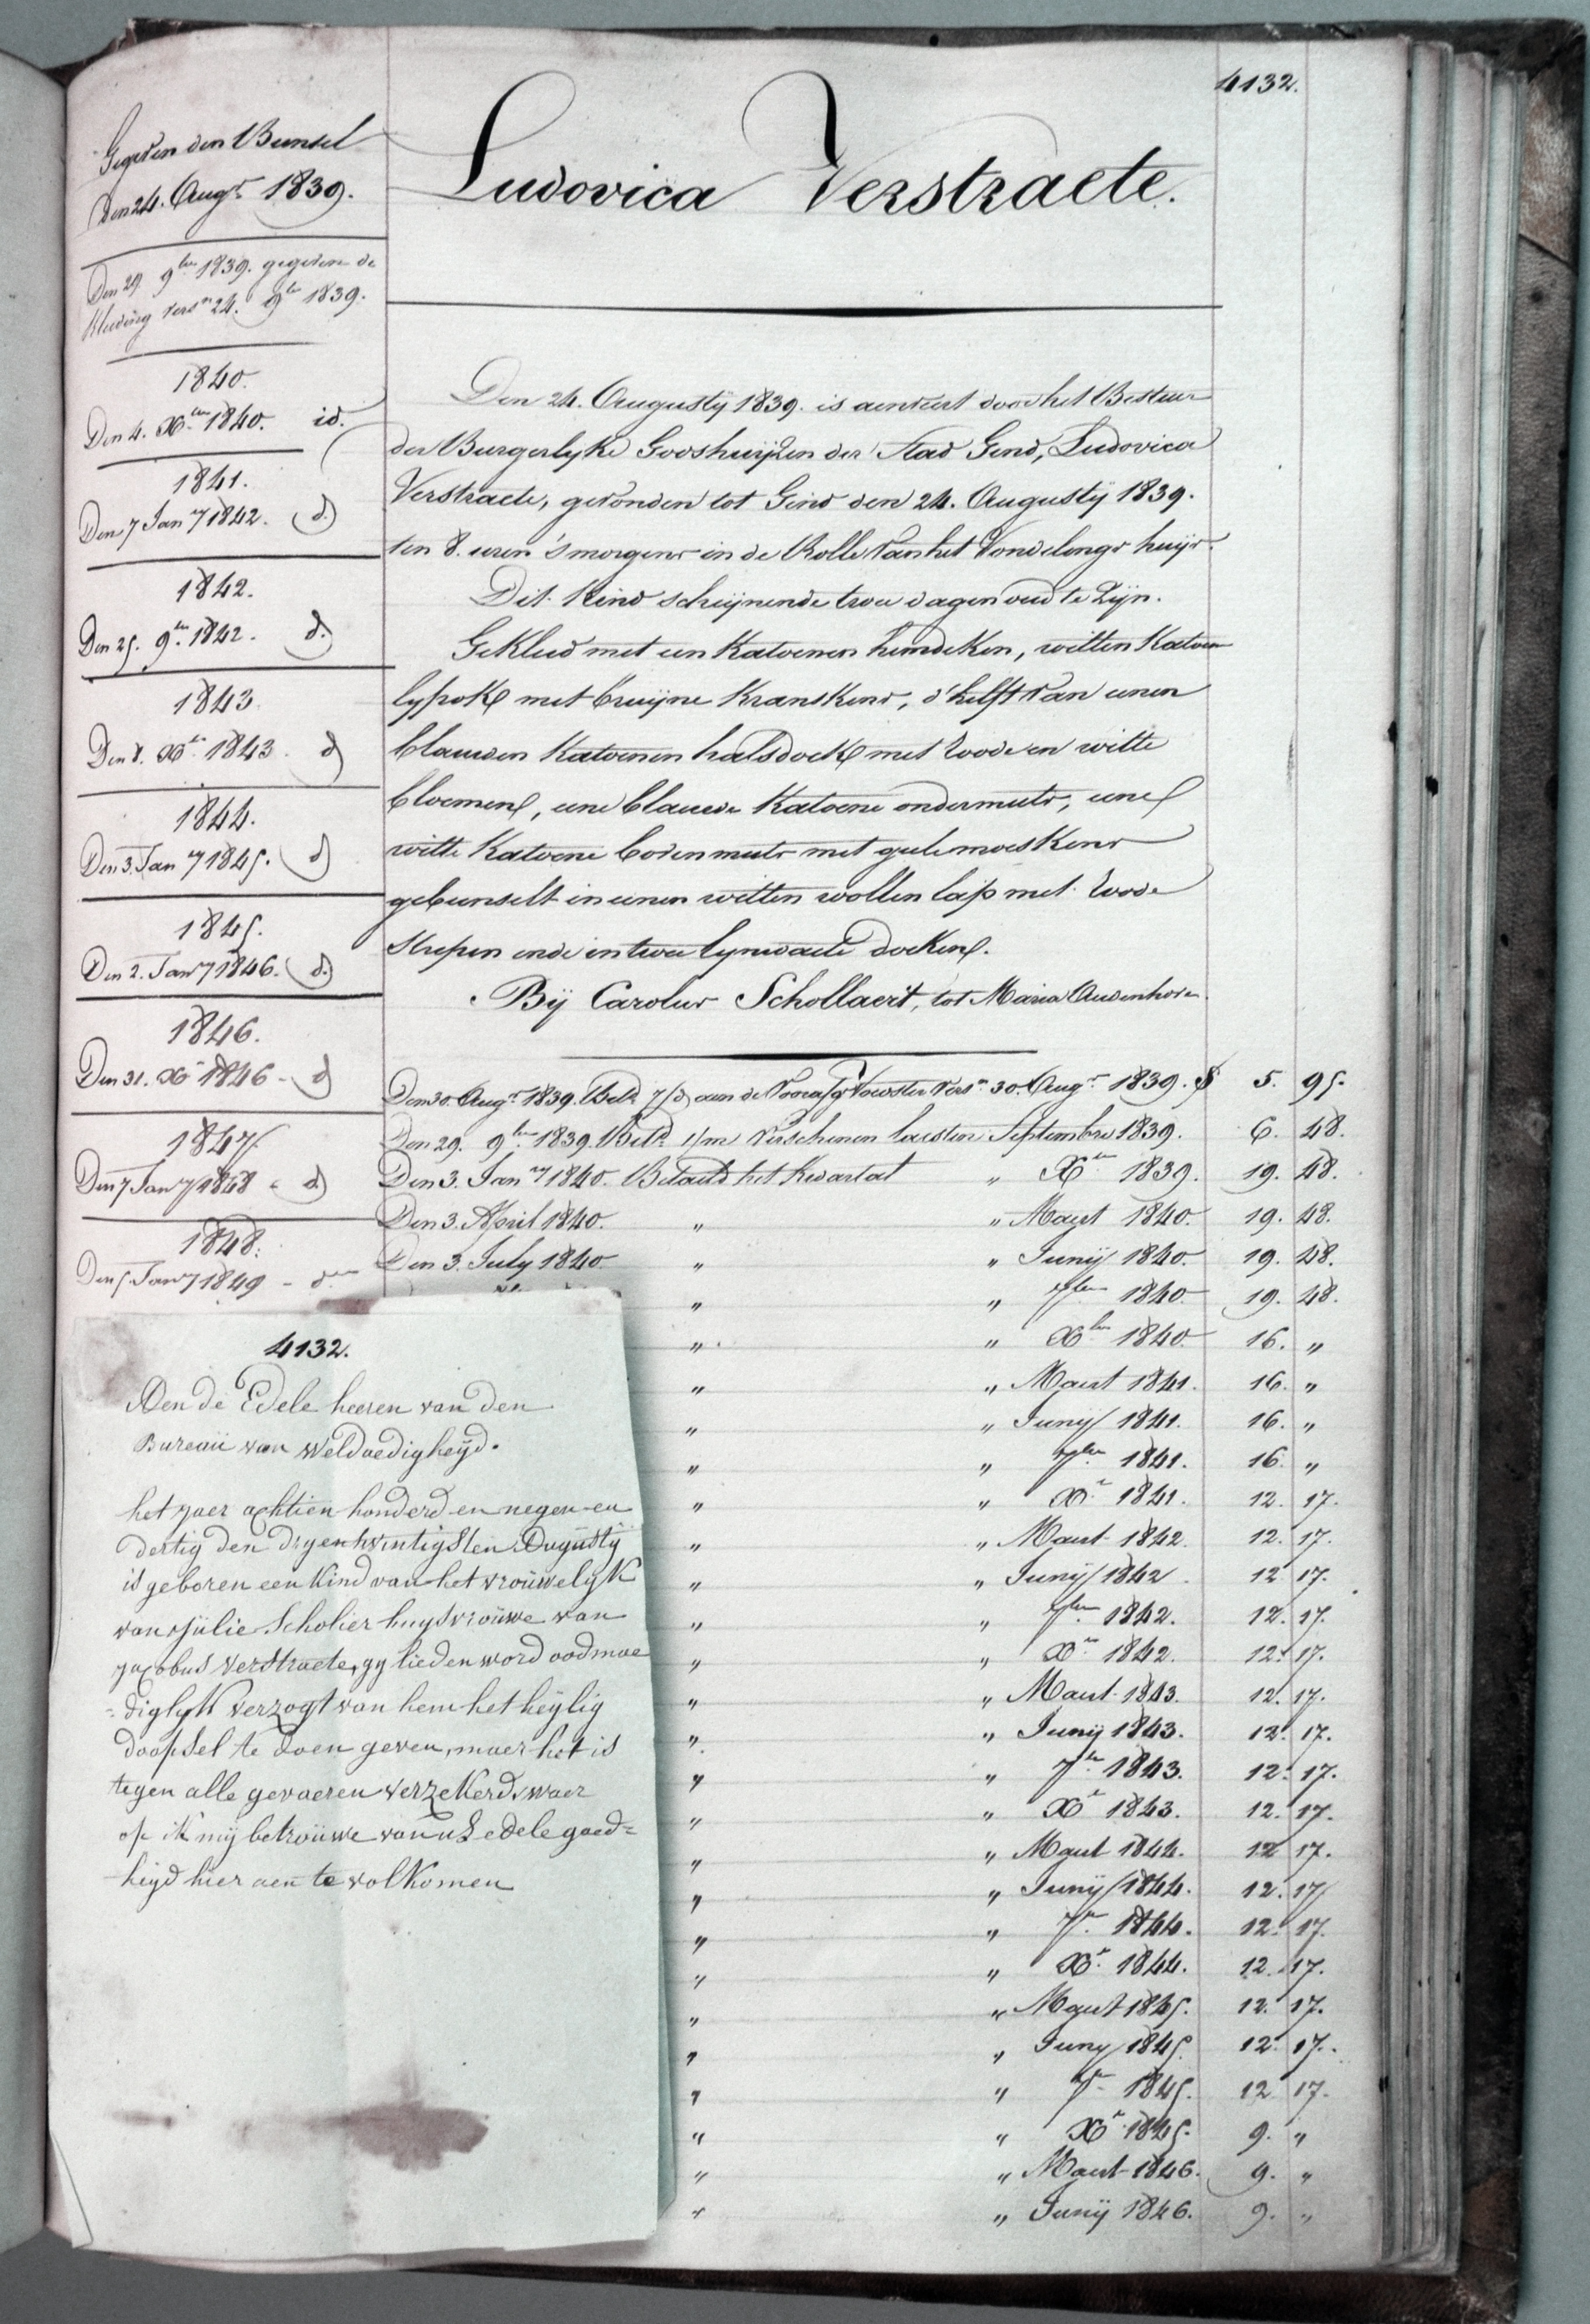 4132.
Ludovica Verstraete.
Gegeven den Bunsel
Den 24. Augt 1839.
Den 29 9ber 1839. gegeven de
Kleeding versn 24. 9br 1839.
1840.
Den 4. Xber 1840. id.
1841.
Den 7 Jany 1842. d.
1842.
Den 25. 9br 1842. d.
1843
Den 8. Xbr 1843 d
1844.
Den 3. Jany 1845. d
1845.
Den 2. Jany 1846. d.
1846.
Den 31. Xbr 1846 - d
1847
Den 7 Jany 1848 - d
1848.
Den 5 Jany 1849 - do
Den 24. Augustÿ 1839. is aenveert door het Bestuer
der Burgerlyke Godshuijzen der Stad Gend, Ludovica
Verstraete, gevonden tot Gend den 24. Augustÿ 1839.
ten 8. uren 's morgens in de Rolle van het Vondelings huijs.
Dit Kind schijnende twee dagen oud te Zijn.
Gekleed met een Katoenen hemdeken, witten Katoen
lyfrok met bruijne Kranskens, d'helft van eenen
blauwen Katoenen halsdoek met Roode en witte
bloemen, eene blauwe Katoene ondermuts, eene
witte Katoene bovenmuts met geele moeskens
gebunselt in eenen witten wollen lap met Roode
Strepen ende in twee lynwaete doeken.
Bÿ Carolus Schollaert, tot Maria Audenhove.
Den 30. Augt 1839. Betd 7/d aen de Voorzorg Voedster versn 30. Augt 1839. f 5. 95.
Den 29. 9ber 1839. Betd 1/m Verschenen laesten Septembre 1839. 6. 48.
Den 3. Jany 1840. Betaeld het Kwartael " Xber 1839. 19. 48.
Den 3. April 1840. " " Maert 1840. 19. 48.
Den 3. July 1840 " " Junÿ 1840. 19. 48.
" " 7ber 1840. 19. 48.
" " Xber 1840 16. "
" " Maert 1841. 16. "
" " Junÿ 1841. 16. "
" " 7ber 1841. 16. "
" " Xr 1841. 12. 17.
" " Maert 1842. 12. 17.
" " Junÿ 1842. 12. 17.
" " 7ber 1842. 12. 17.
" " Xr 1842. 12. 17.
" " Maert 1843. 12. 17.
" " Junÿ 1843. 12. 17.
" " 7br 1843. 12. 17.
" " Xr 1843. 12. 17.
" " Maert 1844. 12 17.
" " Junÿ 1844. 12. 17
" " 7r 1844. 12. 17.
" " Xr 1844. 12. 17.
" " Maert 1845. 12. 17.
" " Juny 1845. 12. 17.
" " 7r 1845. 12 17.
" " Xr 1845. 9. "
" " Maert 1846. 9. "
" " Junÿ 1846. 9. "
4132.
Aen de Edele heeren van den
Bureau van Weldaedigheÿd.
het jaer achtien honderd en negen en
dertig den dryentwintigsten Augustÿ
is geboren een Kind van het vrouwelyk
van julie Scholier huysvrouwe van
jacobus verstraete, gy lieden word oodmoe
=diglyk verzogt van hem het heÿlig
doopsel te doen geven, maer het is
tegen alle gevaeren verzekerd, waer
op ik mij betrouwe van uE edele goed=
heyd hier aen te volkomen